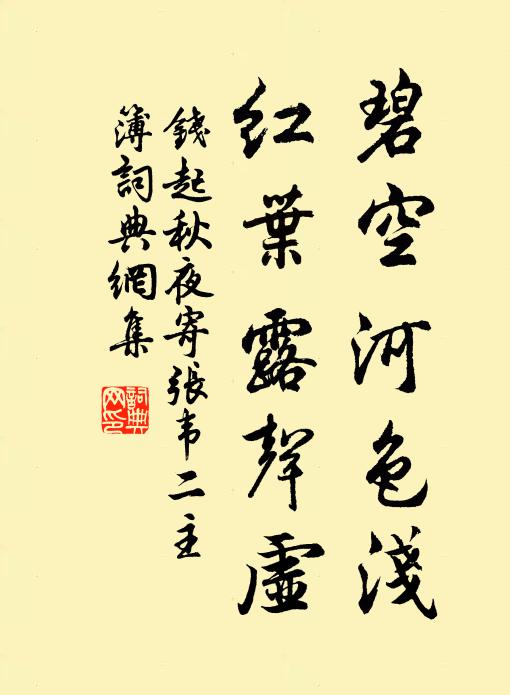 碧空河色淺
紅葉露聲虛
錢起秋夜寄張韦二主
簿詞典網集
詞典网印